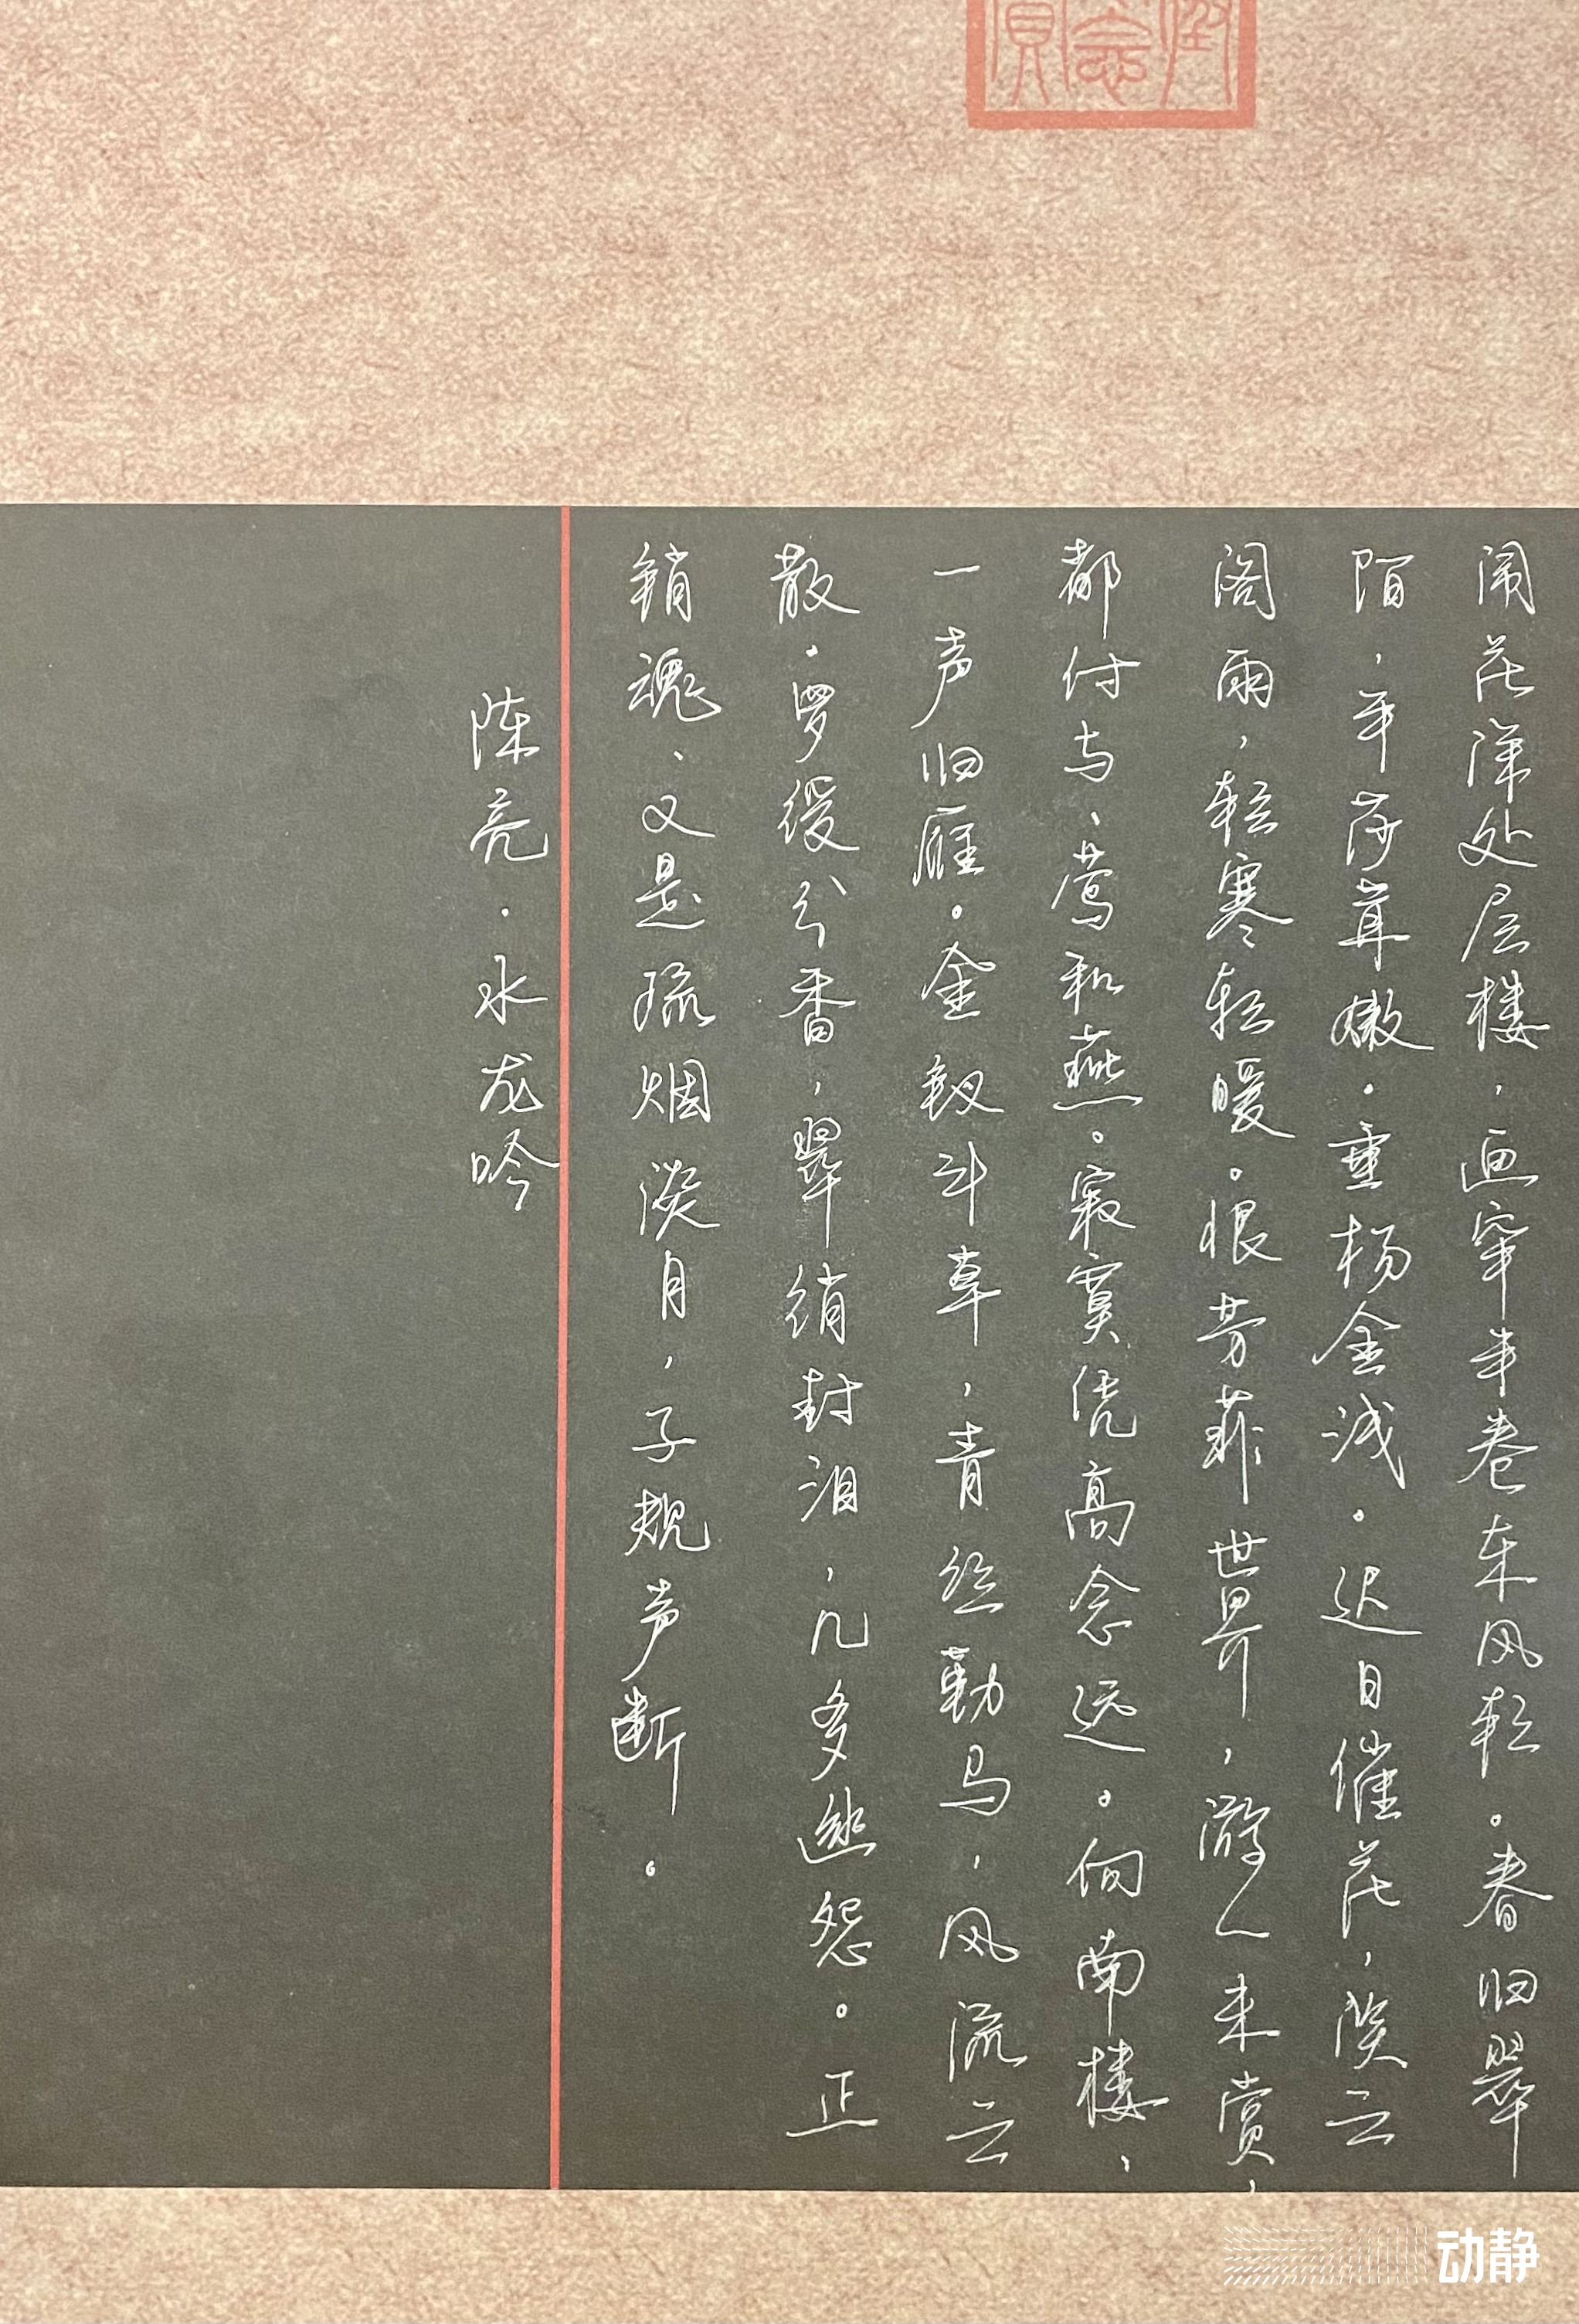 闹花深处层楼，画帘半卷东风软。春归翠
陌，平莎茸嫩，垂杨金浅。迟日催花，淡云
阁雨，轻寒轻暖。恨芳菲世界，游人未赏，
都付与、莺和燕。寂寞凭高念远。向南楼，
一声归雁。金钗斗草，青丝勒马，风流云
散。罗绶分香，翠绡封泪，几多幽怨。正
销魂、又是疏烟淡月，子规声断。
陈亮·水龙吟
动静